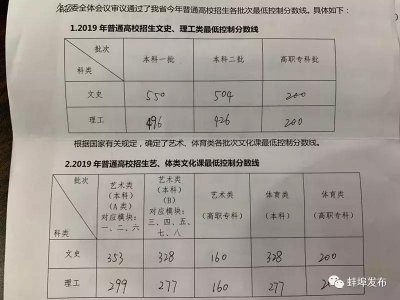 委全体会议审议通过了我省今年普通高校招生各批次最低控制分数线。具体如下：
1.2019 年普通高校招生文史、理工类最低控制分数线
批次 本科一批 本科二批 高职专科批
科类
文史 550 504 200
理工 496 426 200
根据国家有关规定，确定了艺术、体育类各批次文化课最低控制分数线。
2.2019 年普通高校招生艺、体类文化课最低控制分数线
批次 艺术类 艺术类 艺术类 体育类 体育类
（本科） （本科） （高职专科） （本科） （高职专科）
（A 类） （B）
对应模块： 对应模块：
一、二、六 三、四、五、
七、八
科类
文史 353 328 160 328 200
理工 299 277 160 277
蚌埠发布